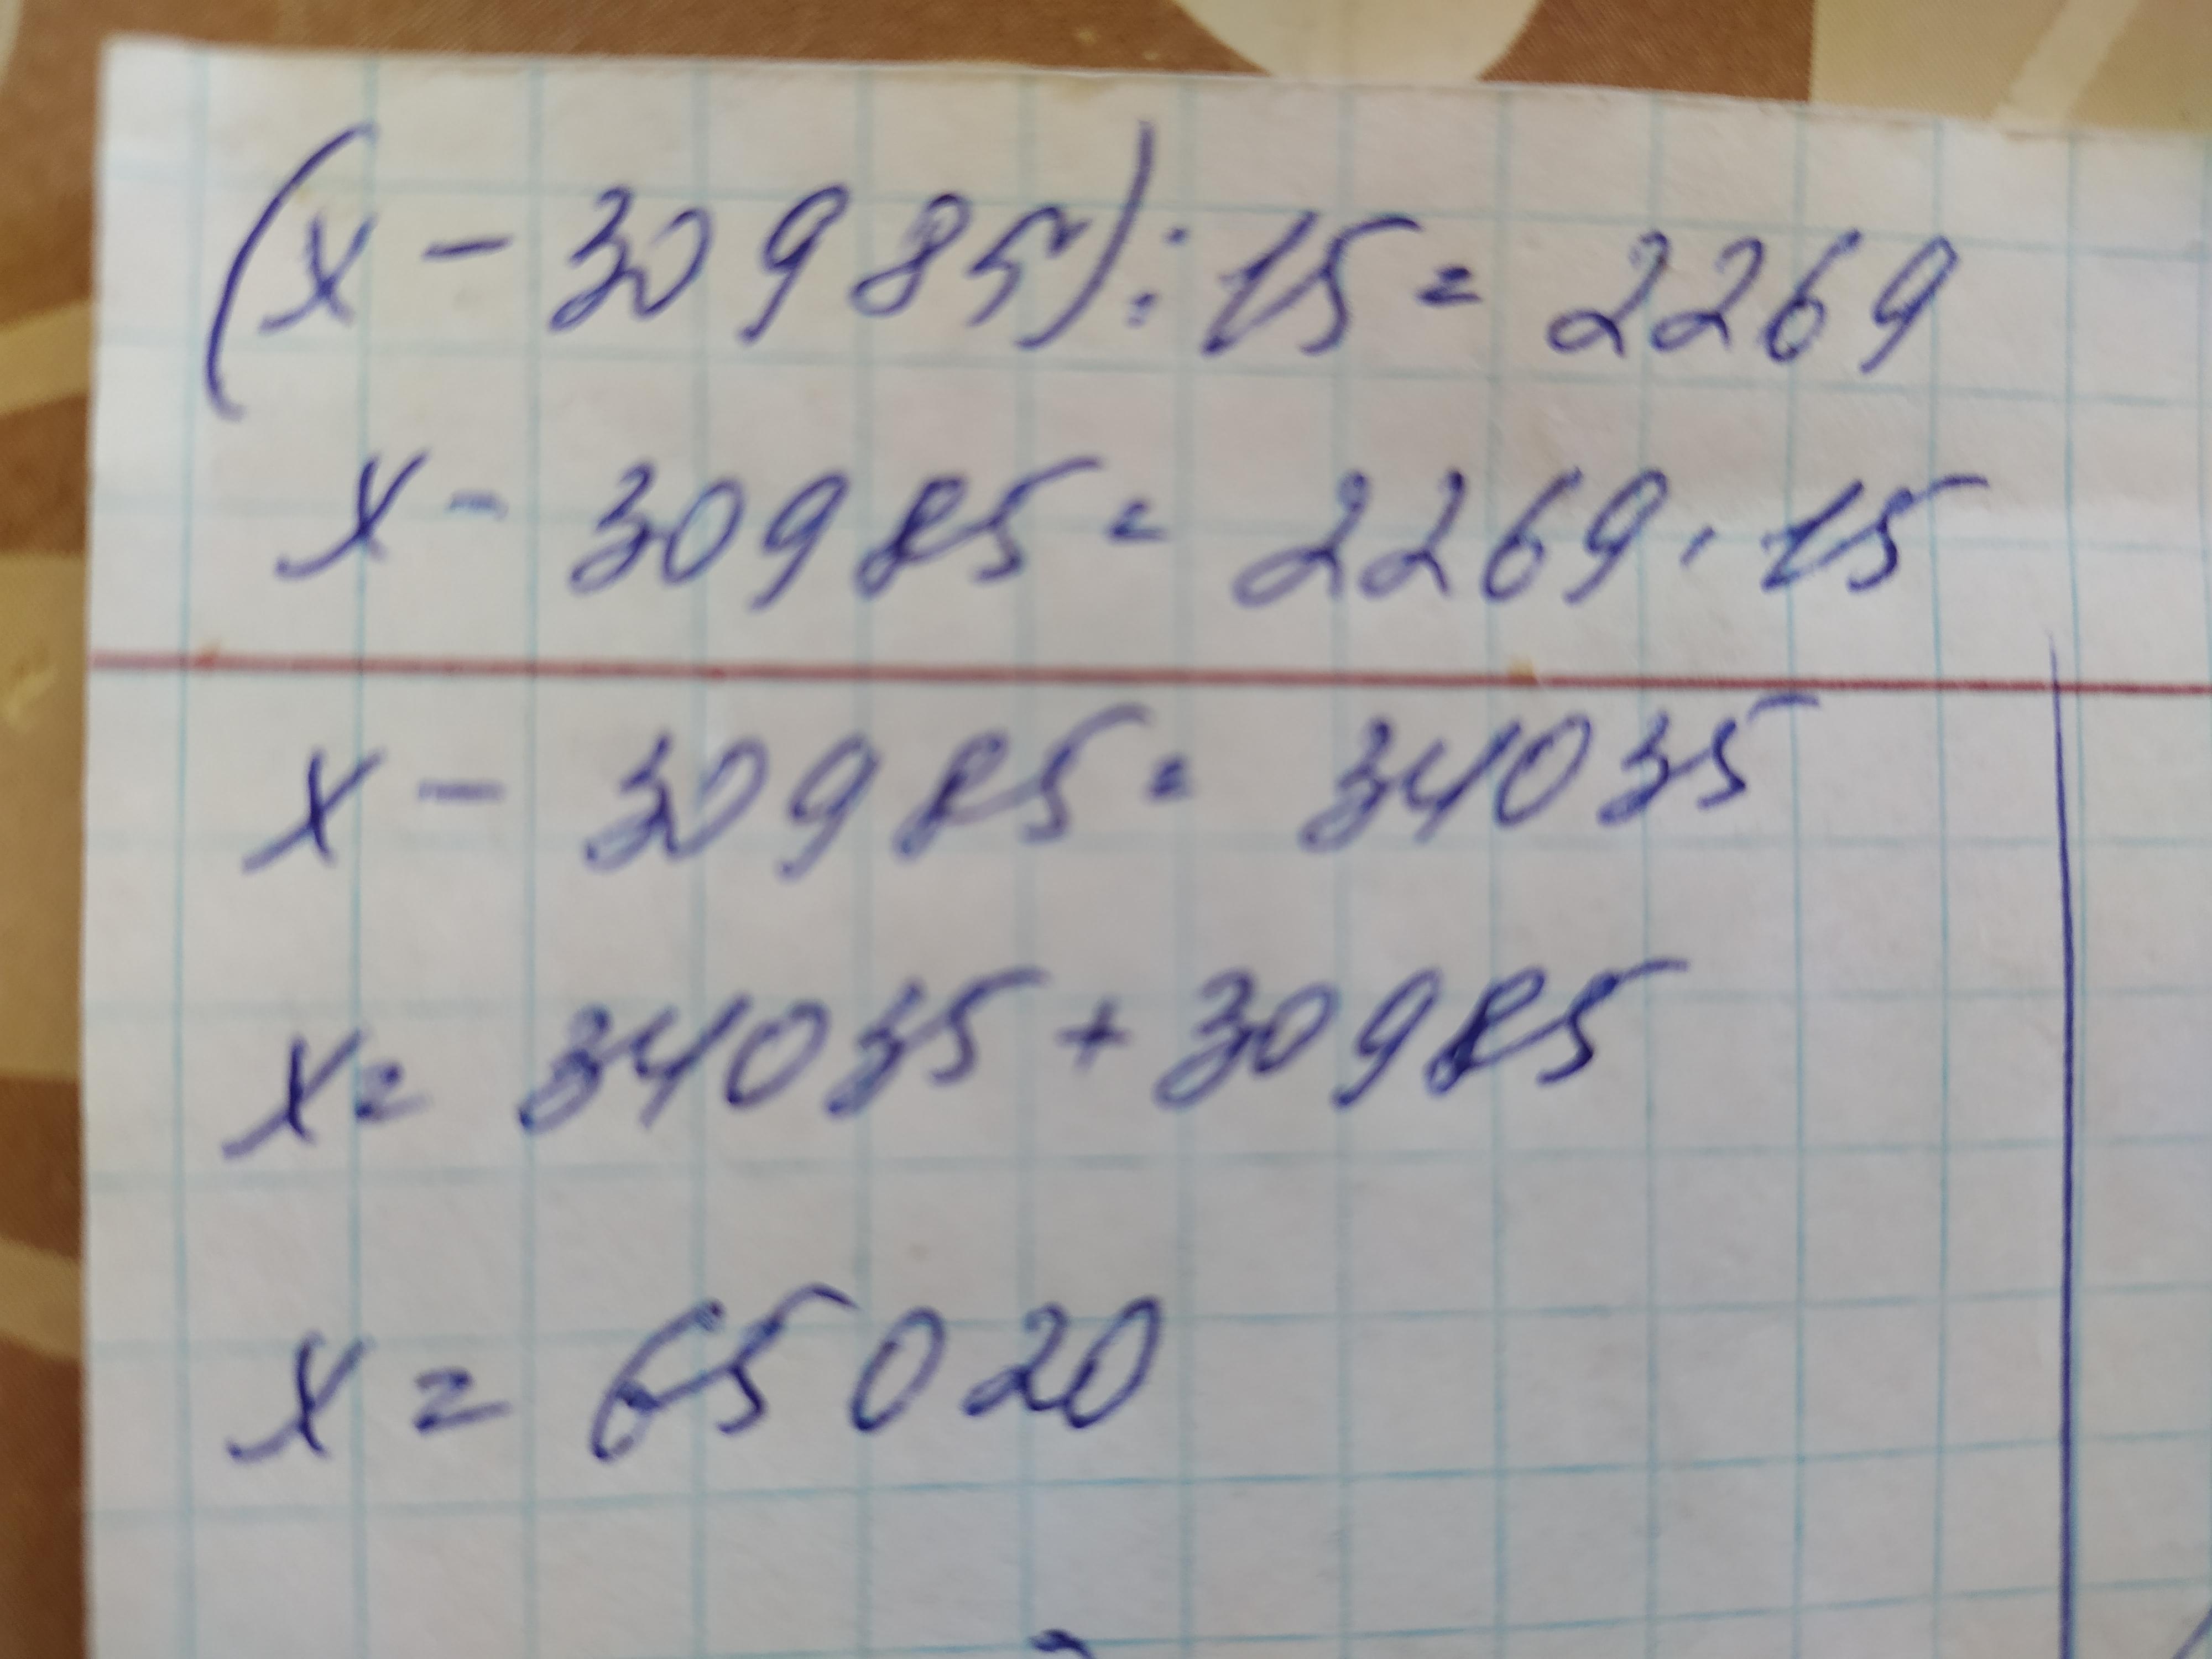 (x - 30985) : 15 = 2269
x - 30985 = 2269 · 15
x - 30985 = 34035
x = 34035 + 30985
x = 65020